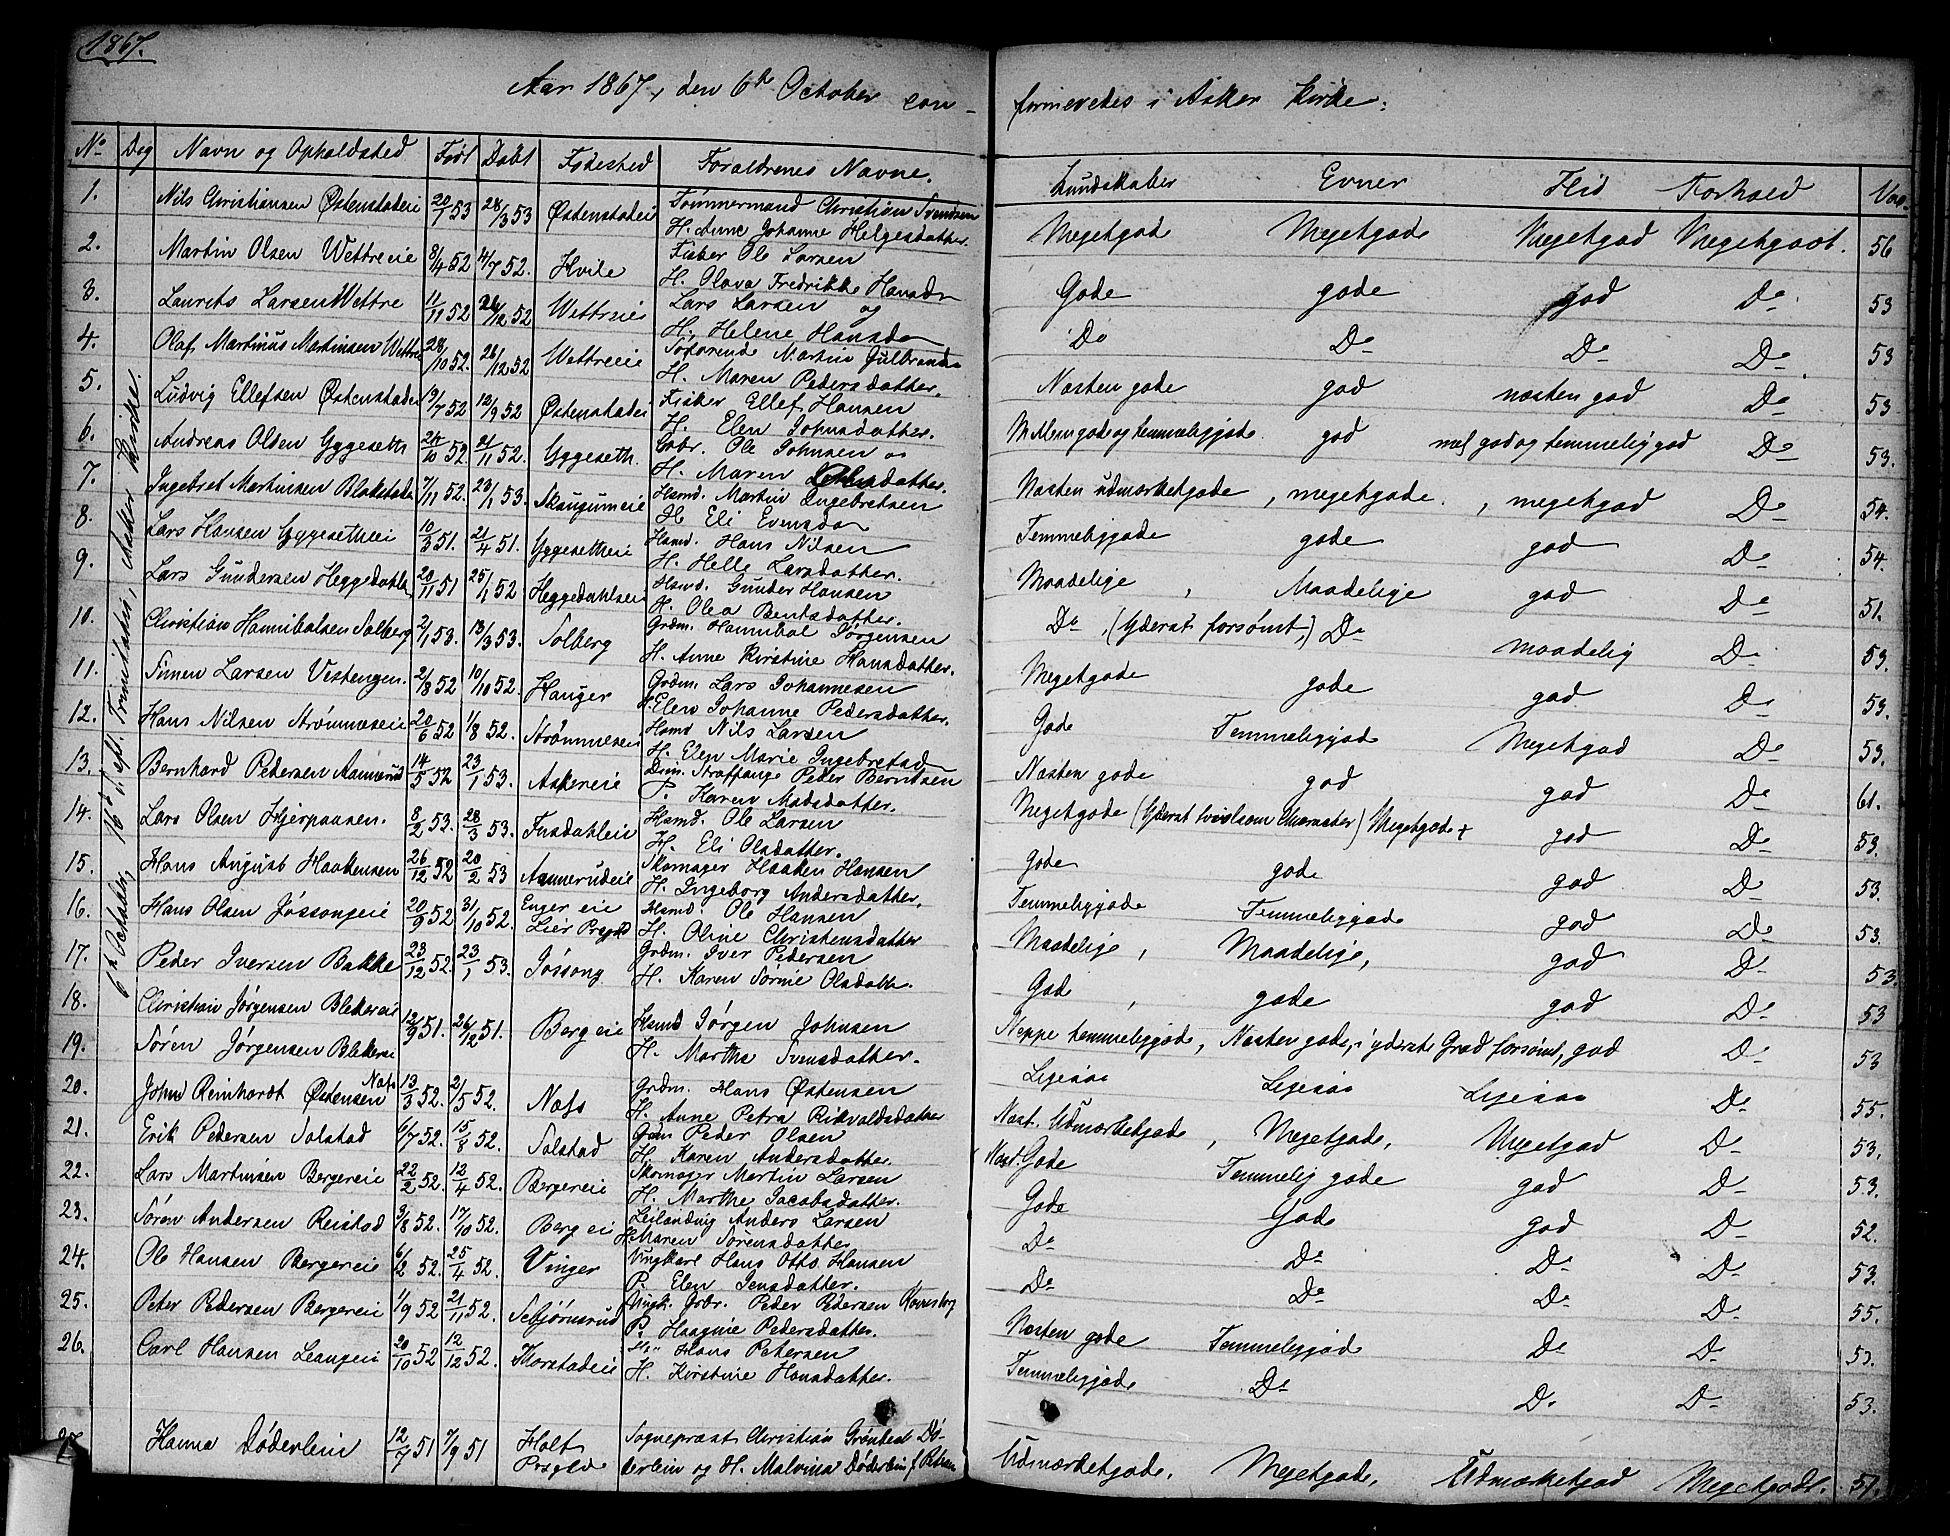 1867.
Aar 1867, den 6te October con-
firmeredes i Asker Kirke:
No Dag Navn og Opholdsted Født Døbt Fødested Forældrenes Navne.
Kundskaber Evner Flid Forhold Vac.
6te October, 16de S. eft. Trinitatis, Asker Kirke.
1. Nils Christiansen Østenstadeie 20/1 53 28/3 53 Østenstadeie Tømmermand Christian Svendsen
H. Anne Johanne Helgesdatter. Megetgode Megetgode Megetgod Megetgodt. 56
2. Martin Olsen Wettreeie 8/4 52 14/7 52. Hvile Fisker Ole Larsen
H. Olava Fredrikke Hansd. Gode gode god Do. 53
3. Laurits Larsen Wettre 11/11 52 26/12 52 Wettreeie Lars Larsen og
H. Helene Hansd. Do Do Do Do 53
4. Olaf Martinus Martinsen Wettre 28/10 52. 26/12 52 Wettreeie Søfarende Martin Gulbrands.
H. Maren Pedersdatter. Næsten gode god næsten god Do 53
5. Ludvig Ellefsen Østenstadeie 19/7 52 12/9 52 Østenstadeie Fisker Ellef Hansen
H. Elen Johnsdatter. Mellemgode og temmeliggode god god og temmelig god Do 53.
6. Andreas Olsen Gyggeseth 24/10 52. 21/11 52. Gyggeseth. Gbr. Ole Johnsen og
H. Maren Olsdatter. Næsten udmærketgode, megetgode, megetgod Do 54.
7. Ingebret Martinsen Blakstad 7/11 52. 23/1 53. Skaugumeie Hsmd. Martin Ingebretsen
H. Eli Evensd. Temmeliggode gode god Do 54.
8. Lars Hansen Gyggesetheie 10/3 51. 21/4 51. Gyggesetheie Hsmd. Hans Nilsen
H. Helle Larsdatter. Maadelige, Maadelige god Do 51.
9. Lars Gundersen Heggedahls 20/11 51 25/1 52 Heggedahlseie Hsmd. Gunder Hansen
H. Olea Berntsdatter. Do, (yderst forsømt,) Do maadelig Do 53.
10. Christian Hannibalsen Solberg 2/1 53. 13/3 53. Solberg Grdm. Hannibal Jørgensen
H. Anne Kirstine Hansdatter. Megetgode gode god Do 53.
11. Simen Larsen Vestengen. 2/8 52 10/10 52. Hauger Grdm. Lars Johannesen
H. Elen Johanne Pedersdatter. Gode Temmeliggode Megetgod Do 53.
12. Hans Nilsen Strømmeseie 20/6 52 1/8 52. Strømmeseie Hsmd Nils Larsen
H. Elen Marie Ingebretsd. Næsten gode god god Do 61.
13. Bernhard Pedersen Aamerud 14/5 52 23/1 53. Askereie Dim. Straffange Peder Berntsen
P. Karen Madsdatter. Megetgode (yderst tvivlsom Character) Megetgode + god Do 53.
14. Lars Olsen Hjerpaasen. 8/2 53. 28/3 53. Fusdahleie Hsmd. Ole Larsen
H. Eli Olsdatter. gode gode god Do 53.
15. Hans August Haakensen 26/12 52 20/2 53 Aamerudeie Skomager Haaken Hansen
H. Ingeborg Andersdatter. Temmeliggode Temmeliggode god Do 53.
16. Hans Olsen Jøssongeie 20/9 52 31/10 52. Enger eie Lier Prgjld Hsmd. Ole Hansen
H. Oline Christensdatter Maadelige, Maadelige, god Do 53.
17. Peder Iversen Bakke 23/12 52. 23/1 53. Jøssong Grdm. Iver Pedersen
H. Karen Sørine Olsdatter. God, gode god Do 53
18. Christian Jørgensen Blekereie
19. Søren Jørgensen Blekereie 12/9 51. 26/12 51. Berg eie Hsmd Jørgen Johnsen
H. Marthe Svensdatter. Neppe temmeliggode, Næsten gode, i yderste Grad forsømt, god Do 53
Ligesaa Ligesaa Ligesaa Do 55.
20. John Reinhardt Østensen Næs 13/3 52. 2/5 52. Næs Grdm. Hans Østensen
H. Anne Petra Rikvaldsdatter Næst. Udmærketgode, Megetgode, Megetgod Do 53.
21. Erik Pedersen Solstad 6/7 52. 15/8 52. Solstad Grdm Peder Olsen
H. Karen Andersdatter. Næst. Gode Temmelig gode god Do 53.
22. Lars Martinsen Bergereie 22/2 52. 12/4 52. Bergereie Skomager Martin Larsen
H. Marthe Jacobsdatter. Gode Gode god Do 52.
23. Søren Andersen Reistad 3/8 52. 17/10 52. Berg eie Leilænding Anders Larsen
H. Maren Sørensdatter Do Do Do Do 53.
24. Ole Hansen Bergereie 6/2 52. 25/4 52. Vinger Ungkarl Hans Otto Hansen
P. Elen Jensdatter. Do Do Do Do 55.
25. Peter Pedersen Bergereie 1/9 52 21/11 52. Sebjørnsrud Ungk. Gbr. Peder Pedersen
P. Haagine Pedersdatter. Næsten gode Temmeliggod Do Do 53.
26. Carl Hansen Leangeie 20/10 52 12/12 52. Korstadeie Hans Petersen
H. Kirstine Hansdatter. Temmeliggode Do Do Do 53.
27. Hanna Døderlein 12/7 51 7/9 51 Holt Prsgjeld Sognepræst Christian Grønbech Dø-
derlein og H. Malvina Døderlein f. Petersen Udmærketgode, Megetgode, Udmærketgod Megetgodt. 51.